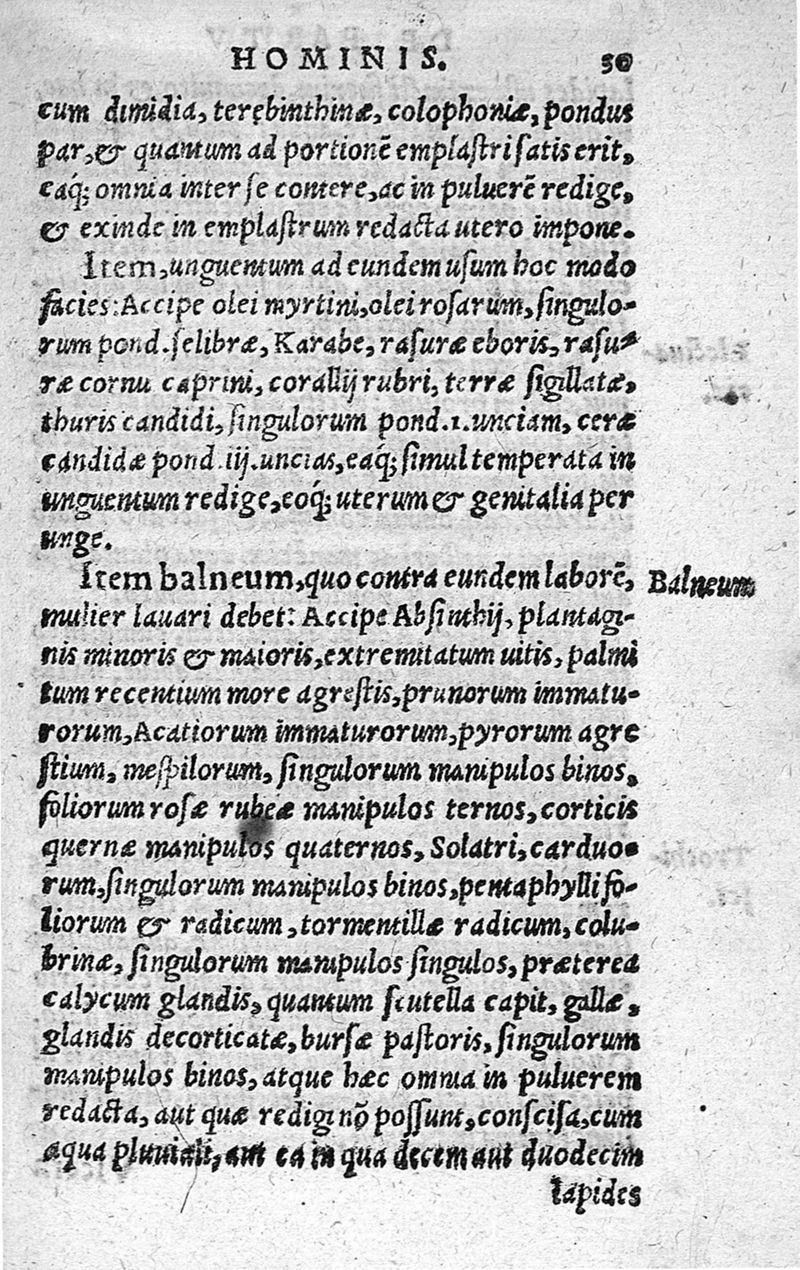 HOMINIS. 50
cum dimidia, terębinthinæ, colophoniæ, pondus
par, & quantum ad portionē emplaſtri ſatis erit,
eaq́; omnia inter ſe contere, ac in puluerē redige,
& exinde in emplaſtrum redacta utero impone.
Item, unguentum ad eundem uſum hoc modo
facies: Accipe olei myrtini, olei roſarum, ſingulo-
rum pond. ſelibræ, Karabe, raſuræ eboris, raſu-
ræ cornu caprini, corallij rubri, terræ ſigillatæ,
thuris candidi, ſingulorum pond. 1. unciam, ceræ
candidæ pond. iij. uncias, eaq́; ſimul temperata in
unguentum redige, eoq́; uterum & genitalia per
unge.
Item balneum, quo contra eundem laborē,
Balneum
mulier lauari debet: Accipe Abſinthij, plantagi-
nis minoris & maioris, extremitatum uitis, palmi
tum recentium more agreſtis, prunorum immatu-
rorum, Acatiorum immaturorum, pyrorum agre
ſtium, meſpilorum, ſingulorum manipulos binos,
foliorum roſæ rubeæ manipulos ternos, corticis
quernæ manipulos quaternos, Solatri, carduo-
rum, ſingulorum manipulos binos, pentaphylli fo-
liorum & radicum, tormentillæ radicum, colu-
brinæ, ſingulorum manipulos ſingulos, præterea
calycum glandis, quantum ſcutella capit, gallæ,
glandis decorticatæ, burſæ paſtoris, ſingulorum
manipulos binos, atque hæc omnia in puluerem
redacta, aut quæ redigi nō poſſunt, conſciſa, cum
aqua pluuiali, aut ea in qua decem aut duodecim
lapides